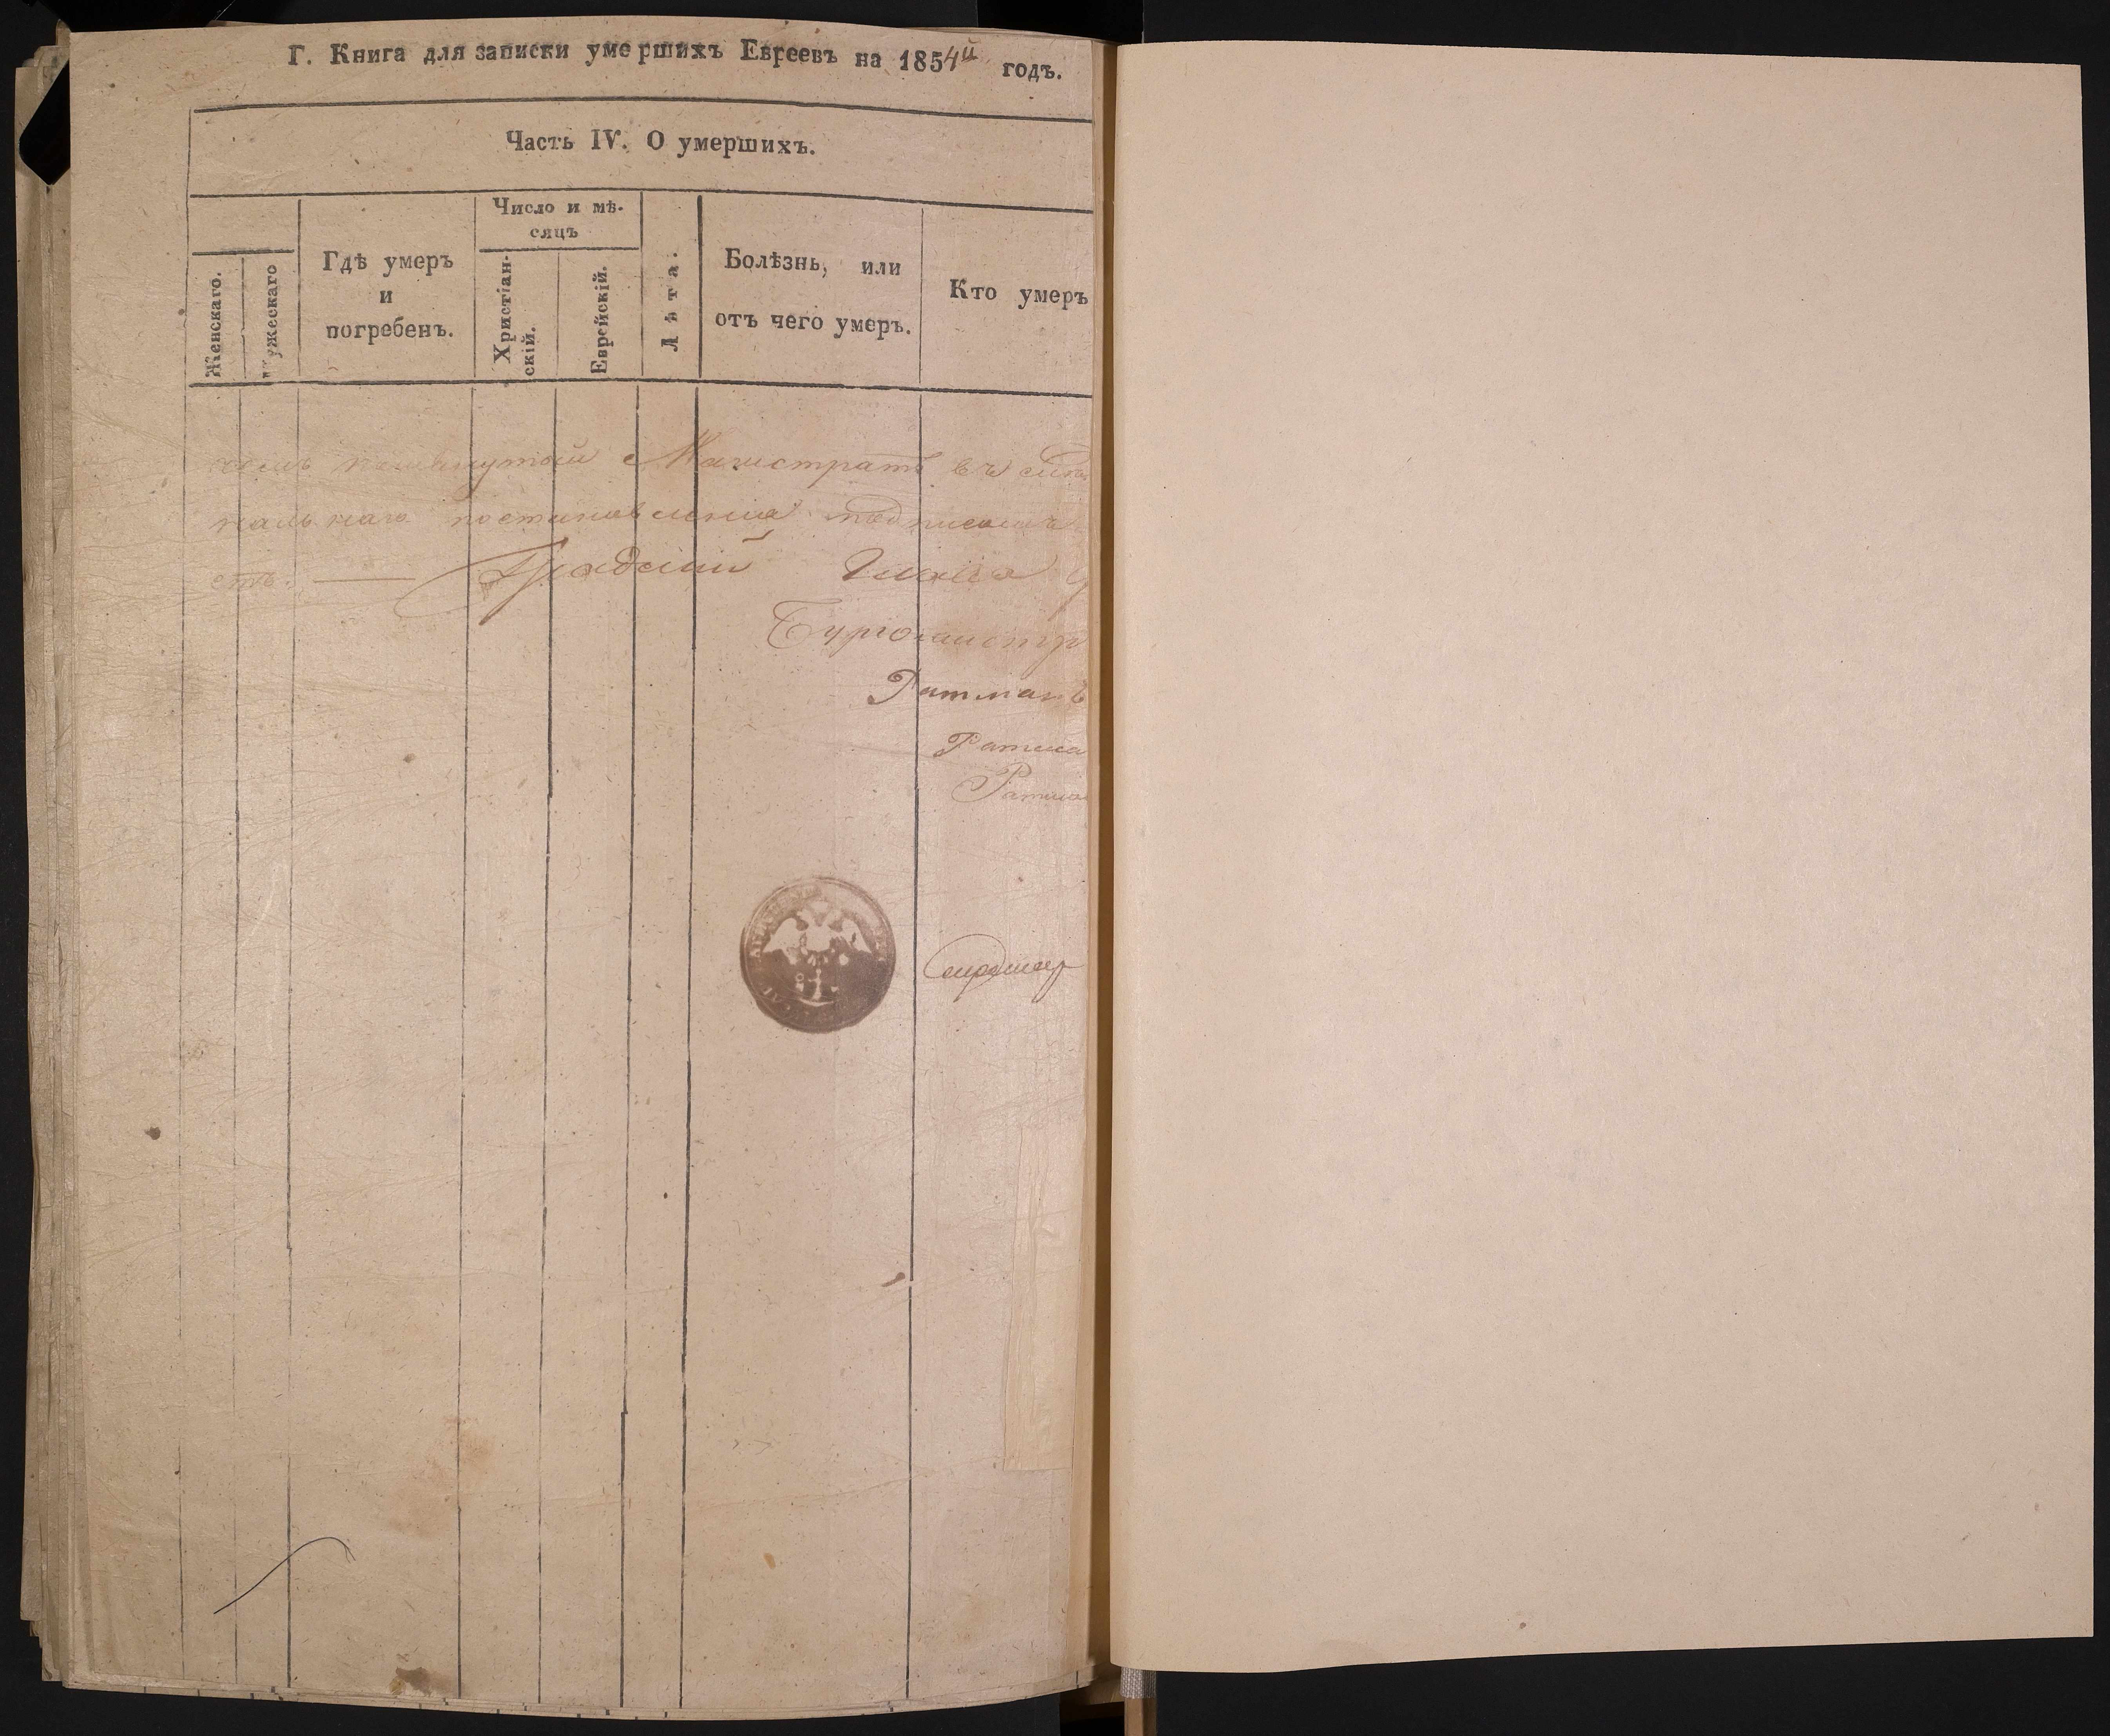 Г. Книга для записки умершихъ Евреевъ на 1854й годъ.
Часть IV. О умершихъ.
Женскаго.
Мужескаго
Гдѣ умеръ
и
погребенъ.
Число и мѣ-
сяцъ
Христіан-
скій.
Еврейскій.
Лѣта.
Болѣзнь, или
отъ чего умеръ.
Кто умеръ
Магистратъ въ
постановленія
Градскій Глава
Бургомистр
Ратманъ
Ратма
Ратма